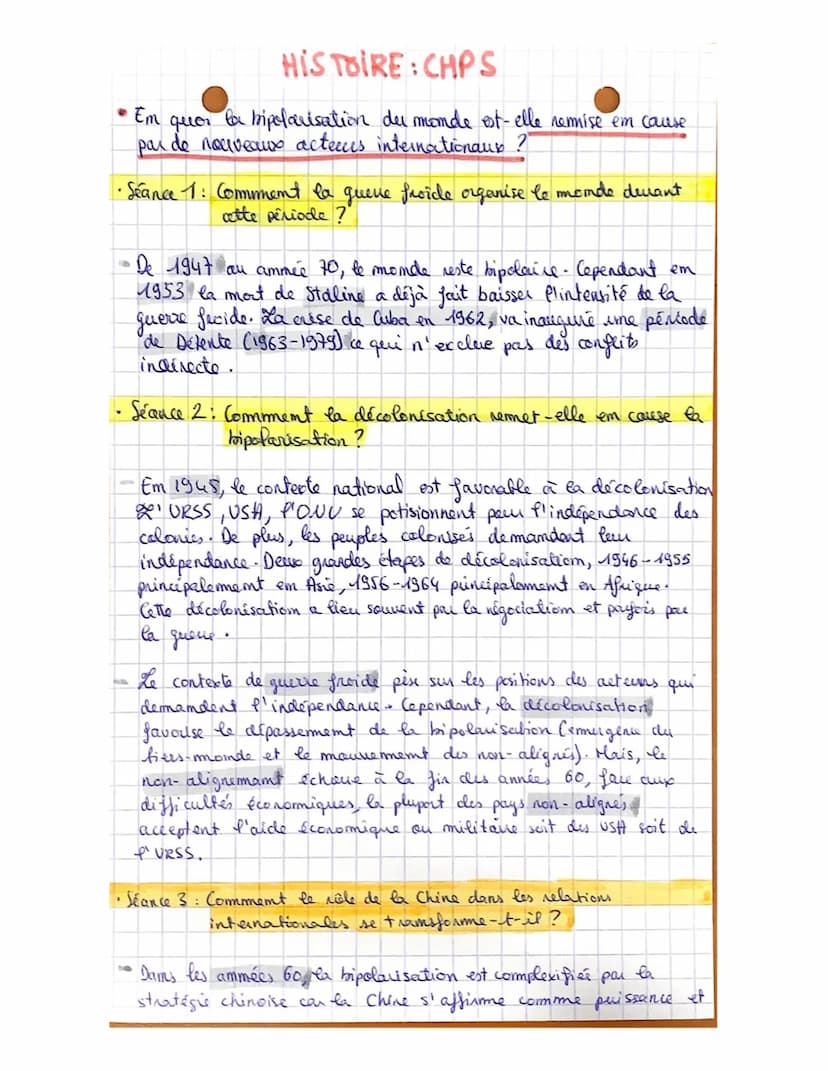 HISTOIRE : CHP5
• En quoi la bipolarisation du monde est-elle remise en cause
par de nouveaux acteurs internationaux ?
• Séance 1 : Comment la guerre froide organise le monde durant
cette période ?
- De 1947 au année 70, le monde reste bipolaire. Cependant en
1953 la mort de Staline a déjà fait baisser l'intensité de la
guerre froide. La crise de Cuba en 1962, va inauguré une période
de Détente (1963-1979) ce qui n'exclue pas des conflits
indirecte.
• Séance 2 : Comment la décolonisation remet-elle en cause la
bipolarisation ?
- En 1945, le contexte national est favorable à la décolonisation
L'URSS, USA, l'ONU se potisionnent pour l'indépendance des
colonies. De plus, les peuples colonisés demandant leur
indépendance. Deux grandes étapes de décolonisation, 1946-1955
principalement en Asie, 1956-1964 principalement en Afrique.
Cette décolonisation a lieu souvent par la négociation et parfois par
la guerre.
- Le contexte de guerre froide pèse sur les positions des acteurs qui
demandent l'indépendance. Cependant, la décolonisation
favorise le dépassement de la bipolarisation (émergence du
tiers-monde et le mouvement des non-alignés). Mais, le
non-alignemant échoue à la fin des années 60, face aux
difficultés économiques, la plupart des pays non-alignés
acceptent l'aide économique ou militaire soit des USA soit de
l'URSS.
• Séance 3 : Comment le rôle de la Chine dans les relations
internationales se transforme-t-il ?
- Dans les années 60, la bipolarisation est complexifiée par la
stratégie chinoise car la Chine s'affirme comme puissance et